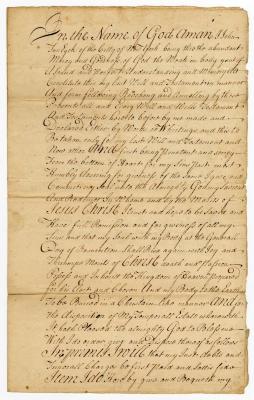 In the Name of God Aman I John
of the City of New York being thro the abundant
Mercy and Goodness of God tho Weak in body yet of
a Sound and Perfect Understanding and Memory do
Constitute this my last Will and Testament in manner
And form following Revokeing and Annulling by these
Presents all and Every Will and Wills Testament
And Testaments heretofore by me made and
Declared Either by Word or Writeing and this to
Be taken only for my last Will and Testament and
None other And first being Penitent and Sorry
From the bottom of Heart for my Sins past most
Humbly desireing for giveness of the Same I give and
Committ my Soul unto the Almighty God my Saviour
And Redeemer In Whom and by the Merits of
Jesus Christ I trust and hope to be Saved and
Have full Remission and for giveness of all my
Sins and that my Soul with my Body at the General
Day of Resurrection Shall Rise again with Joy and
Through Merits of Christ Death and Passion
Possess and Inherit the Kingdom of Heaven Prepared
for his Elect and Chosen And my Body to the Earth
To be Buried in a Christian Like manner And for
the disposition of my Temporall Estate wherewith
It hath Pleased the almighty God to Bless me
With I do order give and Dispose thereof as follows
Imprimis I will that my Just debts and
Funerall Charge be first Paid and Satisfied
Item I do Hereby give and Bequeath my